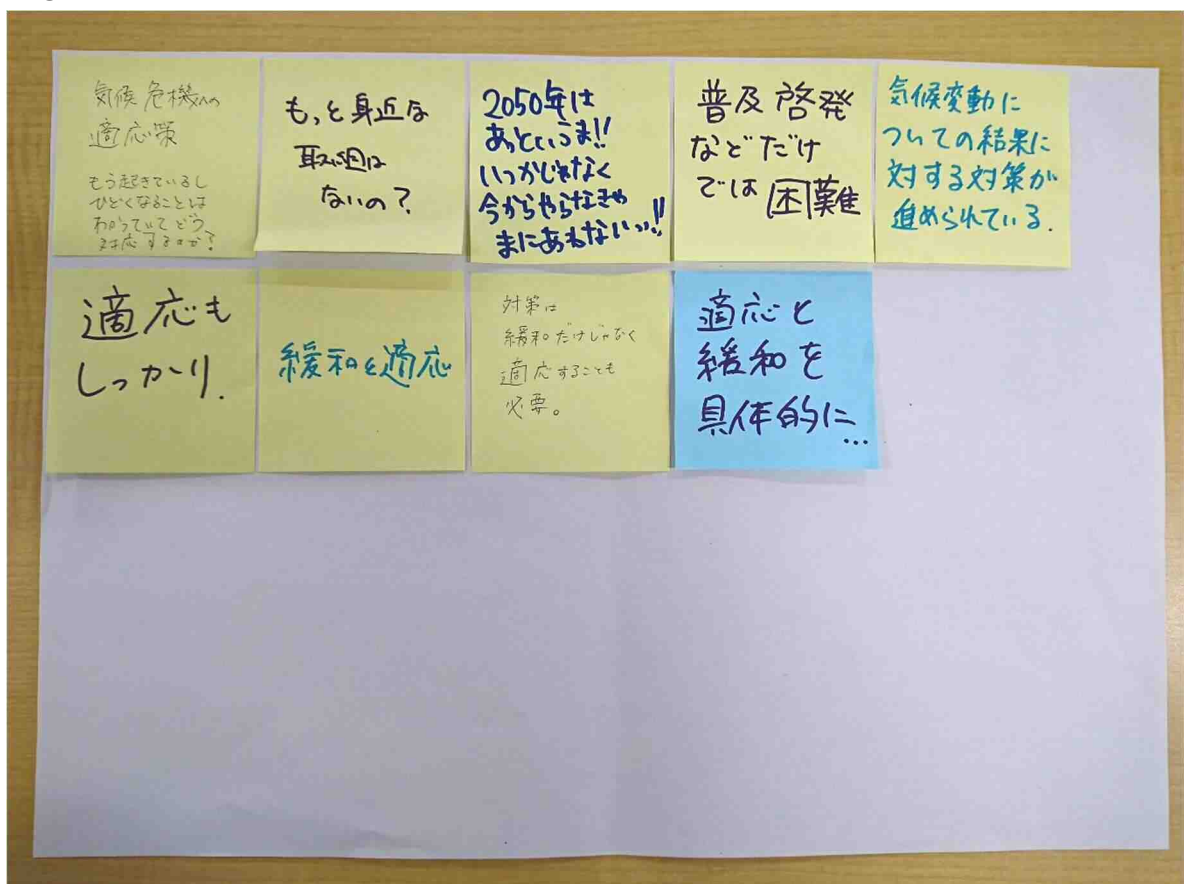 気候危機への
適応策
もう起きているし
ひどくなることは
わかっていてどう
対応するのか？
もっと身近な
取り組は
ないの？
2050年は
あっというま!!
いつかじゃなく
今からやらなきゃ
まにあわないッ!!
普及啓発
などだけ
では困難
気候変動に
ついての結果に
対する対策が
進められている.
適応も
しっかり.
緩和と適応
対策は
緩和だけじゃなく
適応することも
必要。
適応と
緩和を
具体的に...